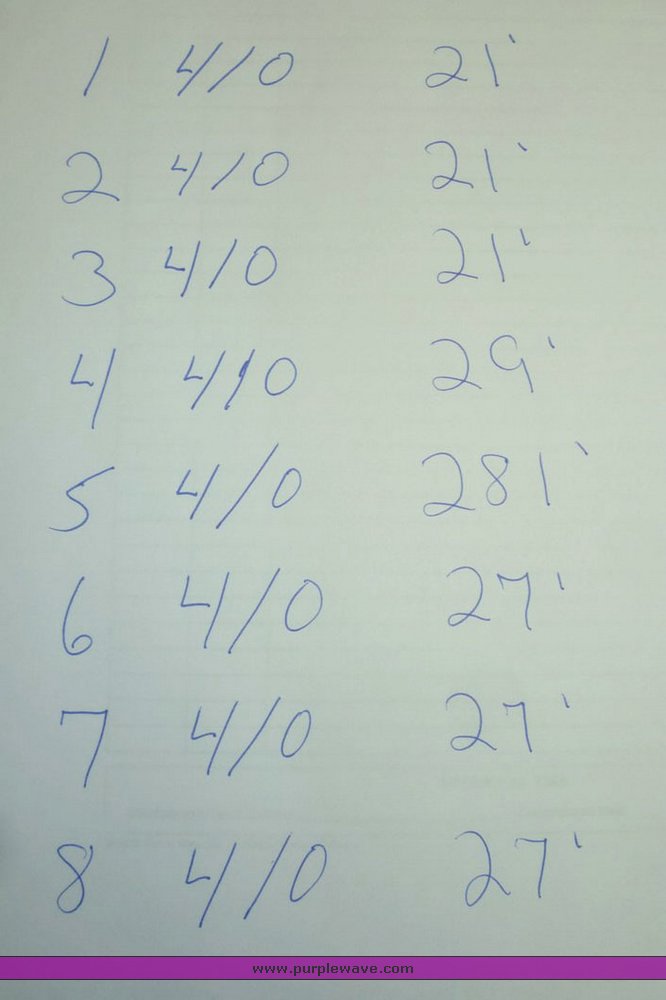 1 4/0 21'
2 4/0 21'
3 4/0 21'
4 4/0 29'
5 4/0 281'
6 4/0 27'
7 4/0 27'
8 4/0 27'
www.purplewave.com